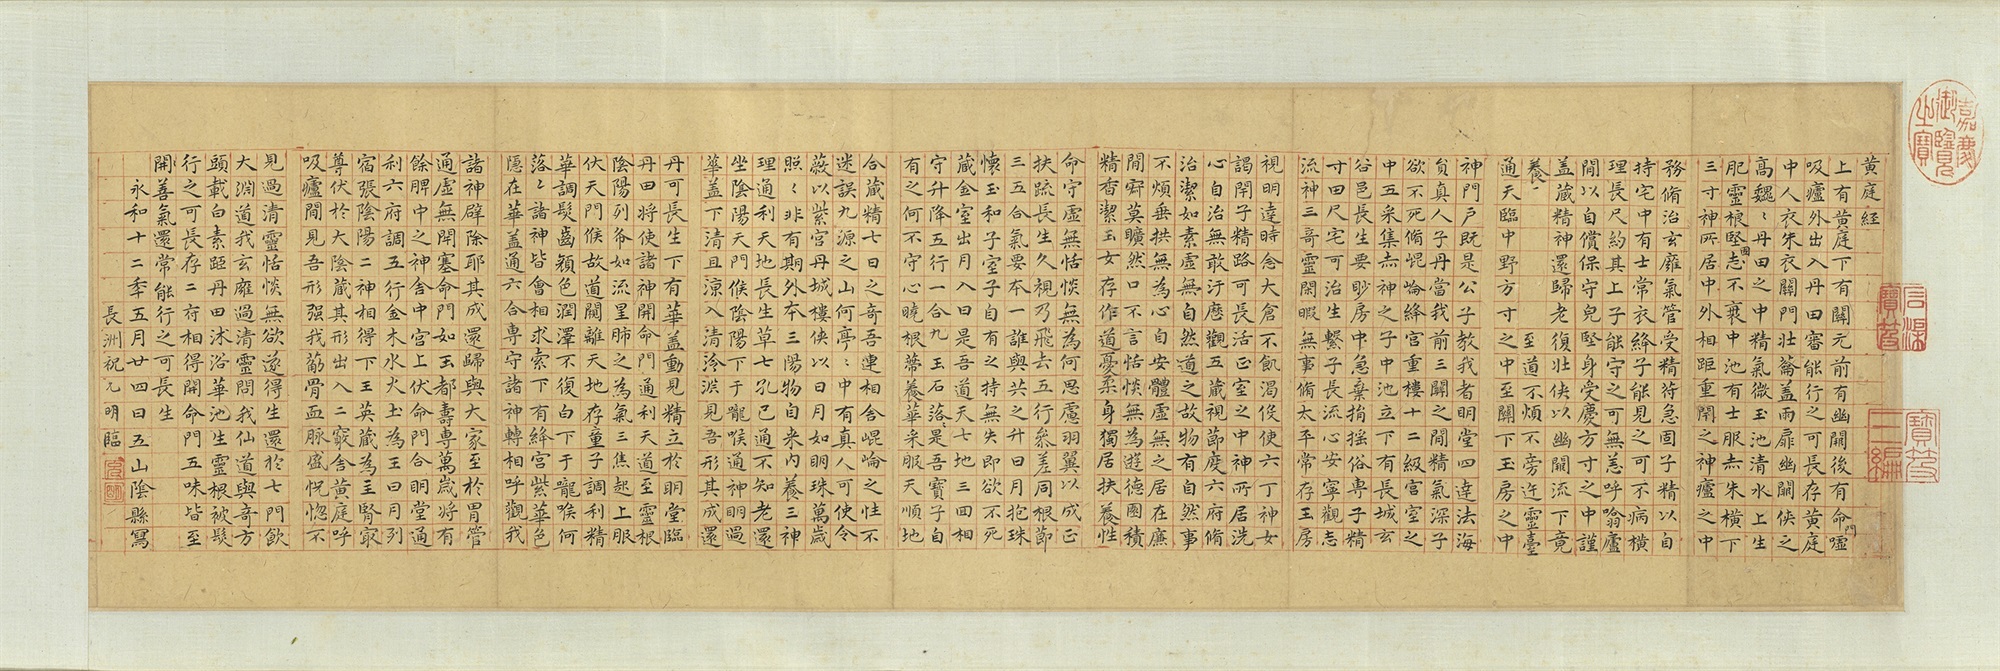 黄庭経
上有黄庭下有關元前有幽闕後有命門噓
吸廬外出入丹田審能行之可長存黄庭
中人衣朱衣關門壮蘥盖兩扉幽闕俠之
高魏〻丹田之中精氣微玉池清水上生
肥靈根堅固志不衰中池有士服赤朱横下
三寸神所居中外相距重閉之神廬之中
務脩治玄癰氣管受精符急固子精以自
持宅中有士常衣絳子能見之可不病横
理長尺約其上子能守之可無恙呼噏廬
間以自償保守皃堅身受慶方寸之中謹
盖藏精神還歸老復壮俠以幽闕流下竟
養 至道不煩不旁迕靈臺
通天臨中野方寸之中至關下玉房之中
神門戶既是公子教我者明堂四達法海
員真人子丹當我前三關之間精氣深子
欲不死脩崐崘絳宮重樓十二級宮室之
中五采集赤神之子中池立下有長城玄
谷邑長生要眇房中急棄捐搖俗専子精
寸田尺宅可治生繫子長流心安寧觀志
流神三奇靈閑暇無事脩太平常存玉房
視明達時念大倉不飢渴役使六丁神女
謁閉子精路可長活正室之中神所居洗
心自治無敢汙歷觀五藏視節度六府脩
治潔如素虛無自然道之故物有自然事
不煩垂拱無為心自安體虛無之居在廉
間寂莫曠然口不言恬惔無為遊德園積
精香潔玉女存作道憂柔身獨居扶養性
命守虛無恬惔無為何思慮羽翼以成正
扶疏長生久視乃飛去五行叅差同根節
三五合氣要本一誰與共之升日月抱珠
懐玉和子室子自有之持無失即欲不死
藏金室出月入日是吾道天七地三回相
守升降五行一合九玉石落〻是吾寶子自
有之何不守心曉根蒂養華采服天順地
合藏精七日之奇吾連相舍崐崘之性不
迷誤九源之山何亭〻中有真人可使令
蔽以紫宮丹城樓俠以日月如明珠萬歲
照〻非有期外本三陽物自来内養三神
理通利天地長生草七孔已通不知老還
坐陰陽天門候陰陽下于嚨喉通神明過
華盖下清且涼入清泠淵見吾形其成還
丹可長生下有華盖動見精立於明堂臨
丹田将使諸神開命門通利天道至靈根
陰陽列布如流星肺之為氣三焦起上服
伏天門候故道闚離天地存童子調利精
華調髮齒顏色潤澤不復白下于嚨喉何
落〻諸神皆會相求索下有絳宮紫華色
隱在華盖通六合専守諸神轉相呼觀我
諸神辟除耶其成還歸與大家至於胃管
通虛無閉塞命門如玉都壽専萬歲将有
餘脾中之神舍中宮上伏命門合明堂通
利六府調五行金木水火土為王日月列
宿張陰陽二神相得下玉英藏為主腎冣
尊伏於大陰藏其形出入二竅舍黄庭呼
吸廬間見吾形强我葡骨血脉盛怳惚不
見過清靈恬惔無欲遂得生還於七門飲
大淵道我玄雍過清靈問我仙道與奇方
頭載白素距丹田沐浴華池生靈根被髮
行之可長存二府相得開命門五味皆至
開善氣還常能行之可長生
永和十二年五月廿四日五山陰縣寫
長洲祝允明臨
嘉慶御覽之寶
石渠寶笈
寶笈三編